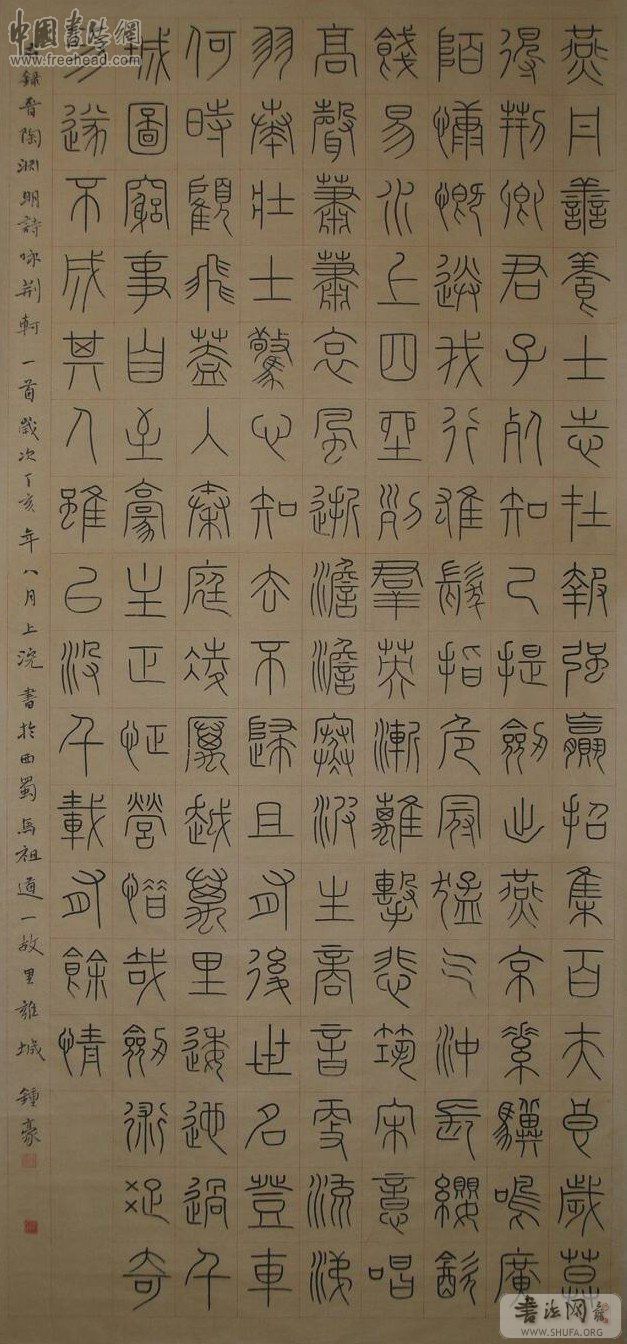 中國書法網
www.freehead.com
燕丹善養士志在報强嬴招集百夫良歲暮
得荊卿君子死知己提劍出燕京素驥鳴廣
陌慷慨送我行雄髮指危冠猛氣沖長纓飲
餞易水上四座列羣英漸離擊悲筑宋意唱
高聲蕭蕭哀風逝澹澹寒波生商音更流涕
羽奏壯士驚心知去不歸且有後世名登車
何時顧飛蓋入秦庭凌厲越萬里逶迤過千
城圖窮事自至豪主正怔營惜哉劍術疏奇
功遂不成其人雖已沒千載有餘情
錄晉陶淵明詩咏荊軻一首歲次丁亥年八月上浣書於西蜀馬祖道一故里雒城 鍾豪
书法网
WWW.SHUFA.ORG